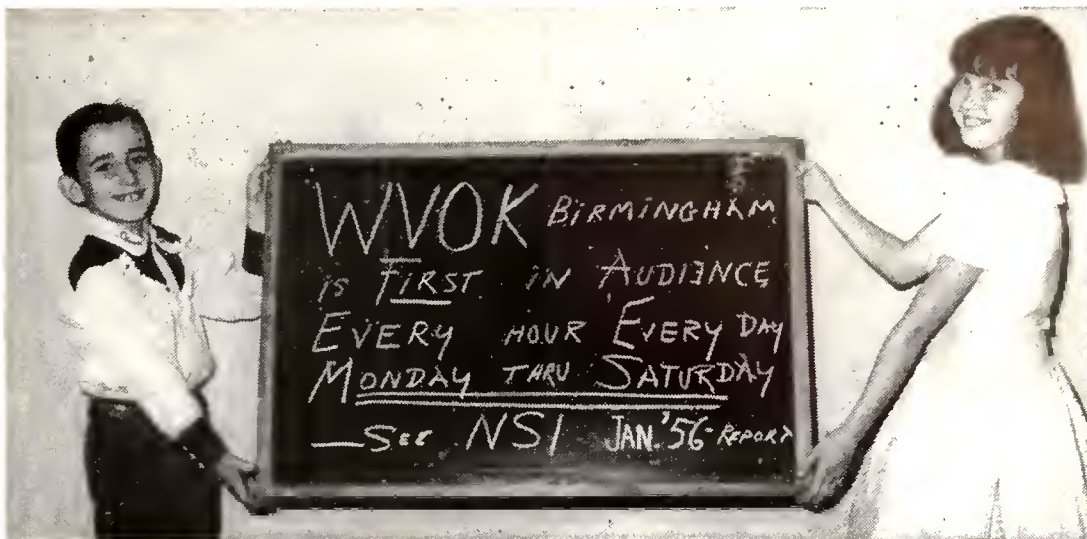 WVOK BIRMINGHAM
is FIRST iN AUDIENCE
EVERY HOUR EVERY DAY
MONDAY THRU SATURDAY
—SEE NSI JAN. '56-REPORT